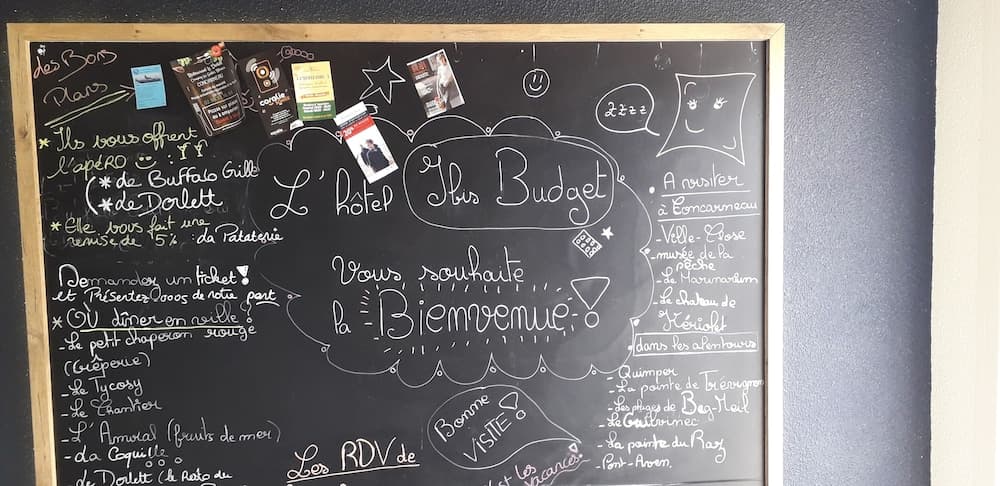 des Bons
Plans
* Ils vous offrent
l'apéRO :
(* de Buffalo Grill
(* de Dorlett
* Elle vous fait une
remise de 5% : La Pataterie
Demandez un ticket !
et Présentez vous de notre part
* OÙ dîner en ville ?
- Le petit chaperon rouge
(Crêperie)
- Le Tycosy
- Le Chantier
- L'Amiral (fruits de mer)
- La Coquille
- Le Dorlett (le Resto du
L'hôtel Ibis Budget
Vous souhaite
la Bienvenue !
Bonne
VISITE !
Les RDV de
c'est les
vacances
zzzz
. A visiter
à Concarneau
- Ville-Close
- musée de la
pêche
- Le Marinarium
- Le château de
Kériolet
dans les alentours
- Quimper
- La pointe de Trévignon
- Les plages de Beg-Meil
- Le Guilvinec
- La pointe du Raz
- Pont-Aven.